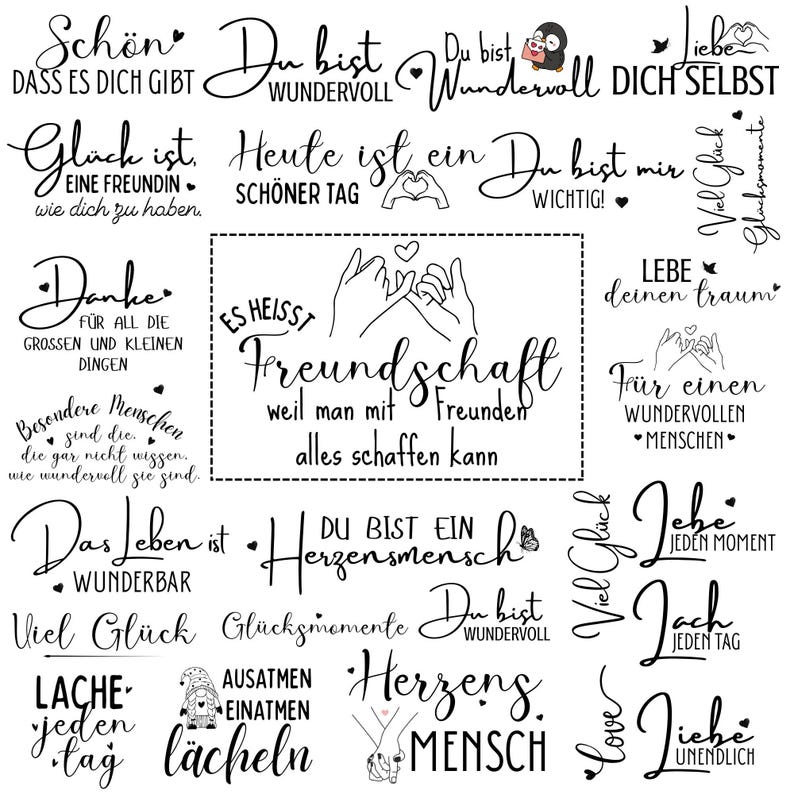 Schön
DASS ES DICH GIBT
Du bist
WUNDERVOLL
Du bist
Wundervoll
Liebe
DICH SELBST
Glück ist,
EINE FREUNDIN
wie dich zu haben.
Heute ist ein
SCHÖNER TAG
Du bist mir
WICHTIG!
Viel Glück
Glücksmomente
Danke
FÜR ALL DIE
GROSSEN UND KLEINEN
DINGEN
ES HEISST
Freundschaft
weil man mit Freunden
alles schaffen kann
LEBE
deinen traum
Für einen
WUNDERVOLLEN
MENSCHEN
Besondere Menschen
sind die,
die gar nicht wissen,
wie wundervoll sie sind.
Das Leben ist
WUNDERBAR
DU BIST EIN
Herzensmensch
Viel Glück
Lebe
JEDEN MOMENT
Viel Glück
Glücksmomente
Du bist
WUNDERVOLL
Lach
JEDEN TAG
LACHE
jeden
tag
AUSATMEN
EINATMEN
lächeln
Herzens
MENSCH
love
Liebe
UNENDLICH